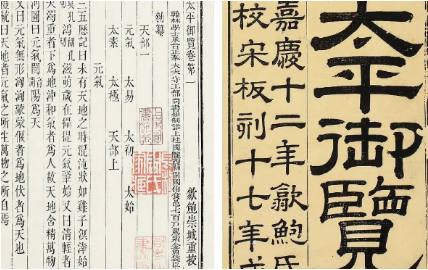 太平御覽卷第一
翰林學士承旨正奉大夫守工部尚書知制誥上柱國隴西縣開國伯食邑七百戶賜紫金魚袋臣
歙鮑崇城重校
天部一
元氣 太易 太初 太始
太素 太極 天部上
元氣
三五歷記曰未有天地之時混沌狀如雞子溟涬始
鴻滋萌歲在攝提元氣肇始又曰清輕者
天濁重者下為地沖和氣者為人故天地含精萬物
河圖曰元氣闓陽為天
又曰元氣無形洶洶蒙蒙偃者為地伏者為天也
禮統曰天地者元氣之所生萬物之所自焉
太平御覽
嘉慶十二年歙鮑氏
校宋板刻十七年成